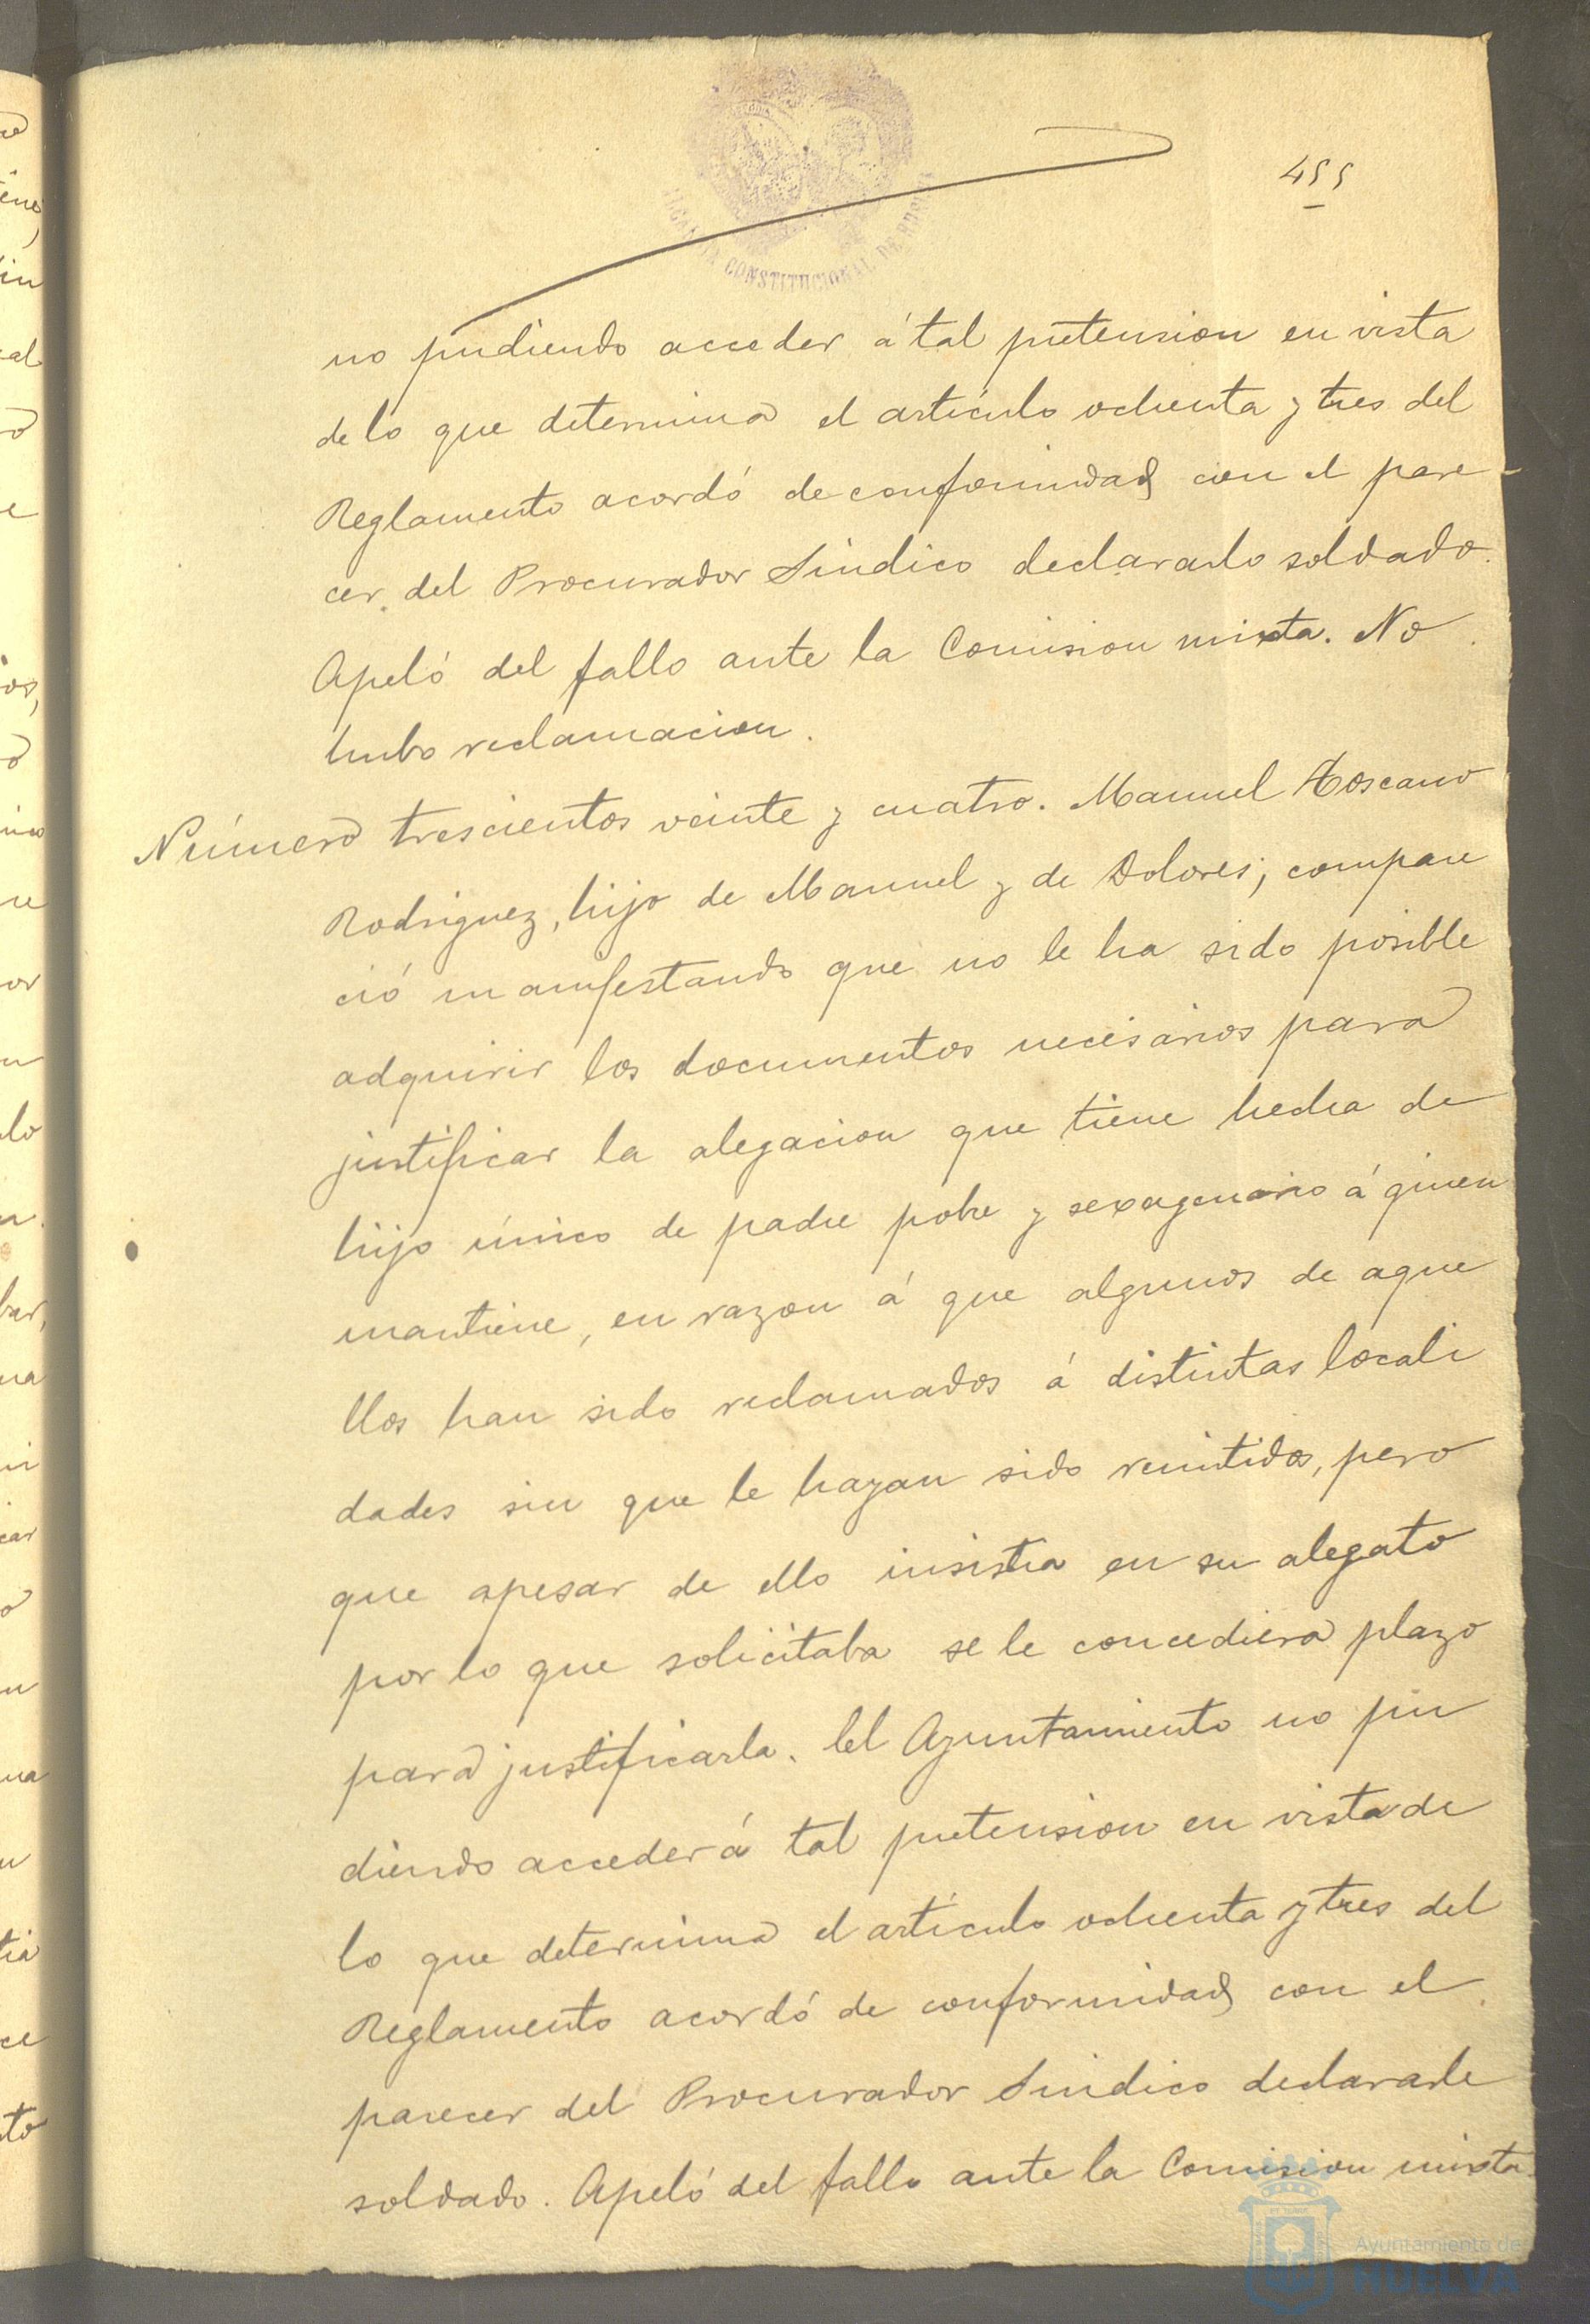 455
ALCALDIA CONSTITUCIONAL DE HUELVA
no pudiendo acceder á tal pretension en vista
de lo que determina el artículo ochenta y tres del
Reglamento acordó de conformidad con el pare-
cer del Procurador Síndico declararlo soldado.
Apeló del fallo ante la Comision mixta. No
hubo reclamacion.
Número trescientos veinte y cuatro. Manuel Toscano
Rodriguez, hijo de Manuel y de Dolores; compare
ció manifestando que no le ha sido posible
adquirir los documentos necesarios para
justificar la alegacion que tiene hecha de
hijo único de padre pobre y sexagenario á quien
mantiene, en razon á que algunos de aque
llos han sido reclamados á distintas locali
dades sin que le hayan sido remitidos, pero
que apesar de ello insistia en su alegato
por lo que solicitaba se le concediera plazo
para justificarla. El Ayuntamiento no pu
diendo acceder á tal pretension en vista de
lo que determina el artículo ochenta y tres del
Reglamento acordó de conformidad con el
parecer del Procurador Síndico declararle
soldado. Apeló del fallo ante la Comision mixta.
Ayuntamiento de
HUELVA